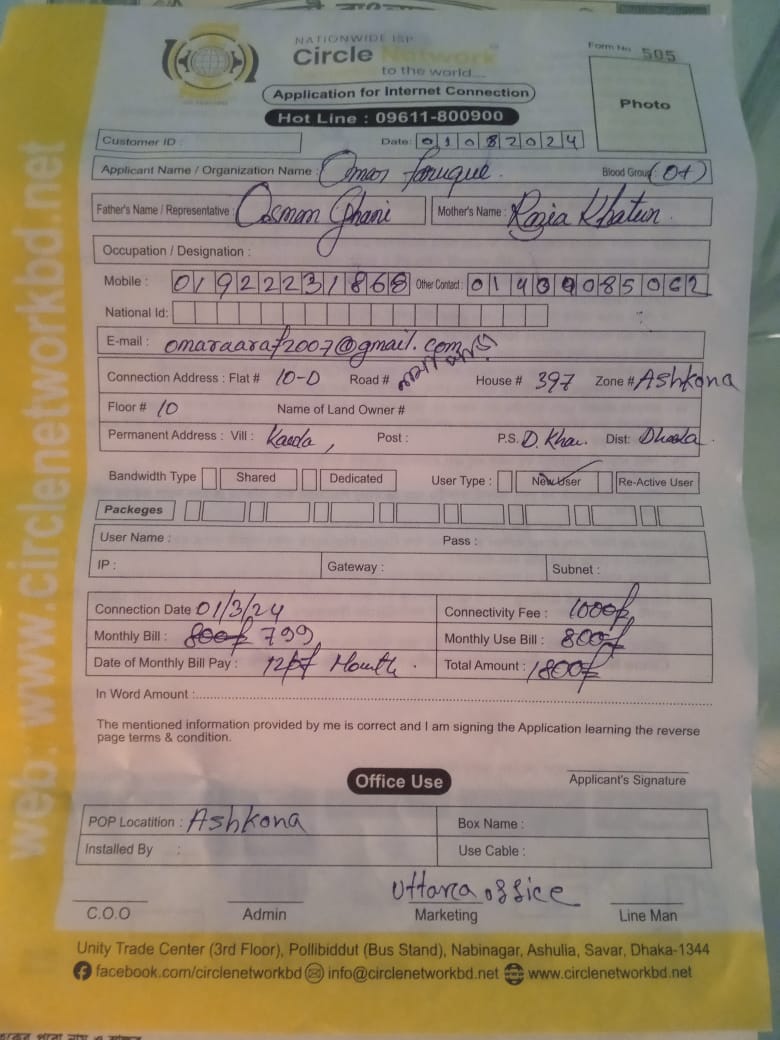 NATIONWIDE ISP
Circle Network
to the world....
Form No 505
Application for Internet Connection
Hot Line : 09611-800900
Photo
Customer ID :
Date: 01082024
Applicant Name / Organization Name : Omar Faruque
Blood Group: (O+)
Father's Name / Representative : Osman Ghani Mother's Name : Razia Khatun
Occupation / Designation :
Mobile : 01922231868 Other Contact: 01085062
National Id:
E-mail : omaraaraf2007@gmail.com
Connection Address : Flat # 10-D Road # House # 397 Zone # Ashkona
Floor # 10 Name of Land Owner #
Permanent Address : Vill : Post : P.S. D. Khan. Dist: Dhaka.
Bandwidth Type Shared Dedicated User Type : New User Re-Active User
Packeges
User Name : Pass :
IP : Gateway : Subnet :
Connection Date 01/3/24 Connectivity Fee : 1000/
Monthly Bill : 800/ 799 Monthly Use Bill : 800/
Date of Monthly Bill Pay : Month. Total Amount : 1800/
In Word Amount :
The mentioned information provided by me is correct and I am signing the Application learning the reverse
page terms & condition.
Applicant's Signature
Office Use
POP Locatition : Ashkona Box Name :
Installed By : Use Cable :
Uttara office
C.O.O Admin Marketing Line Man
Unity Trade Center (3rd Floor), Pollibiddut (Bus Stand), Nabinagar, Ashulia, Savar, Dhaka-1344
facebook.com/circlenetworkbd info@circlenetworkbd.net www.circlenetworkbd.net
web: www.circlenetworkbd.net